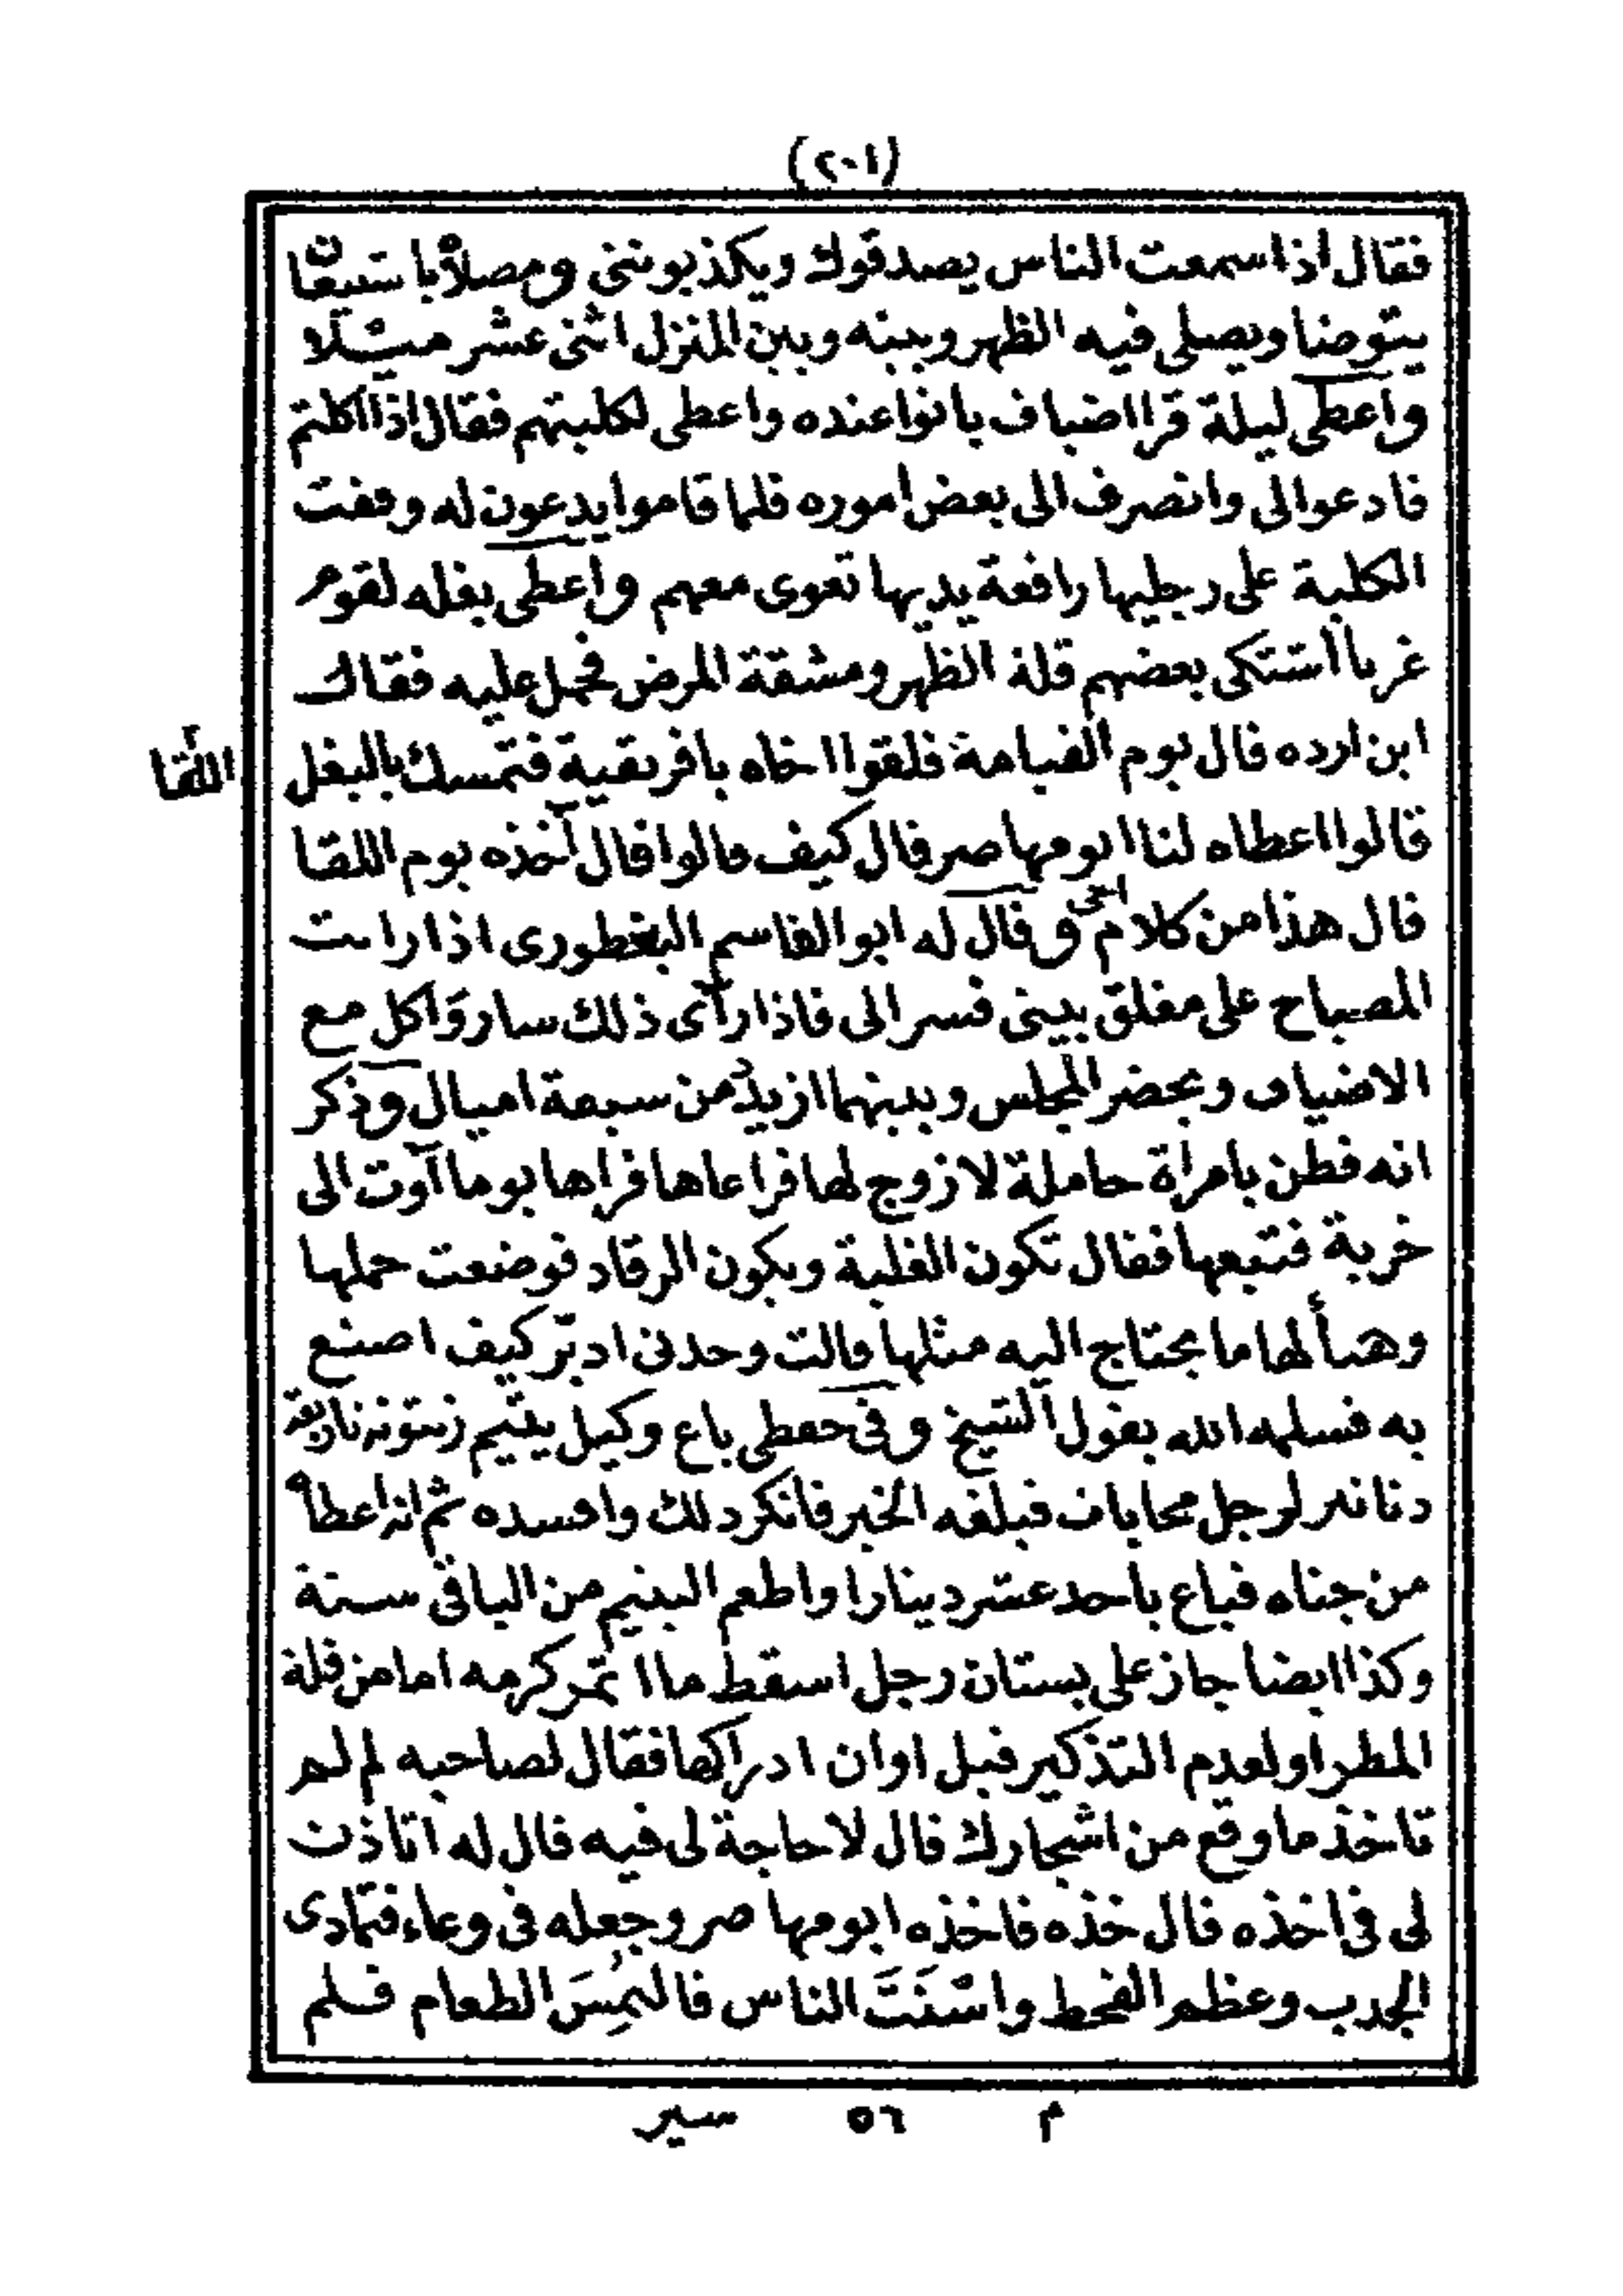 (٢٠١)
فقال اذا سمعت الناس يصدقوك ويكذبونني ومصلاه با ستيغان
يتوضا ويصلى فيه الظهر وبينه وبين المنزل اثنى عشر ميلا
واعطى ليلة قرا اضياف باتوا عنده واعطى لكلبتهم فقال اذا اكلتم
فادعوا لى وانصرف الى بعض اموره فلما قاموا يدعون له وقفت
الكلبة على رجليها رافعة يديها تعوى معهم واعطى بغله لقوم
غربا اشتكى بعضهم قلة الظهر ومشقة المرض فحمل عليه فقال
اين ارده قال يوم القيامة فلقوا اخاه بافريقية فتمسك بالبغل
اللقا
قالوا اعطاه لنا ابو مهاصر قال كيف قالوا قال آخذه يوم اللقا
قال هذا من كلام اخى وقال له ابو القاسم البغطورى اذا رايت
المصباح على مغلق بيتى فسر الى فاذا رآى ذلك سار وَاكل مع
الاضياف ويحضر المجلس وبينهما ازيد من سبعة اميال وذكر
انه فطن بامراة حاملة لا زوج لها فراعاها فراها يوما آوت الى
خربة فتبعها فقال تكون الغلبة ويكون الرقاد فوضعت حملها
وهيأ لها ما يحتاج اليه مثلها قالت وحدنى ادبّر كيف اصنع
به فسلمه الله بقول الشيخ وفى حفظى باع وكيل يتيم زيتونه باربعة
دنانير لرجل محابات فبلغه الخبر فانكر ذلك وافسده ثم انه اعطاه
من جناه فباع باحد عشر دينارا واطعم اليتيم من الباقى سنة
وكذا ايضا جاز على بستان رجل اسقط ما اثمر كرمه اما من قلة
المطر او لعدم التذكير قبل اوان ادراكها فقال لصاحبه لم لم
تاخذ ما وقع من اشجارك قال لا حاجة لى فيه قال له اتاذن
لى فى اخذه قال خذه فاخذه ابو مهاصر وجعله فى وعاء فتمادى
الجدب وعظم القحط واسْنَتَ الناس فالتُمِسَ الطعام فلم
م ٥٦ سير